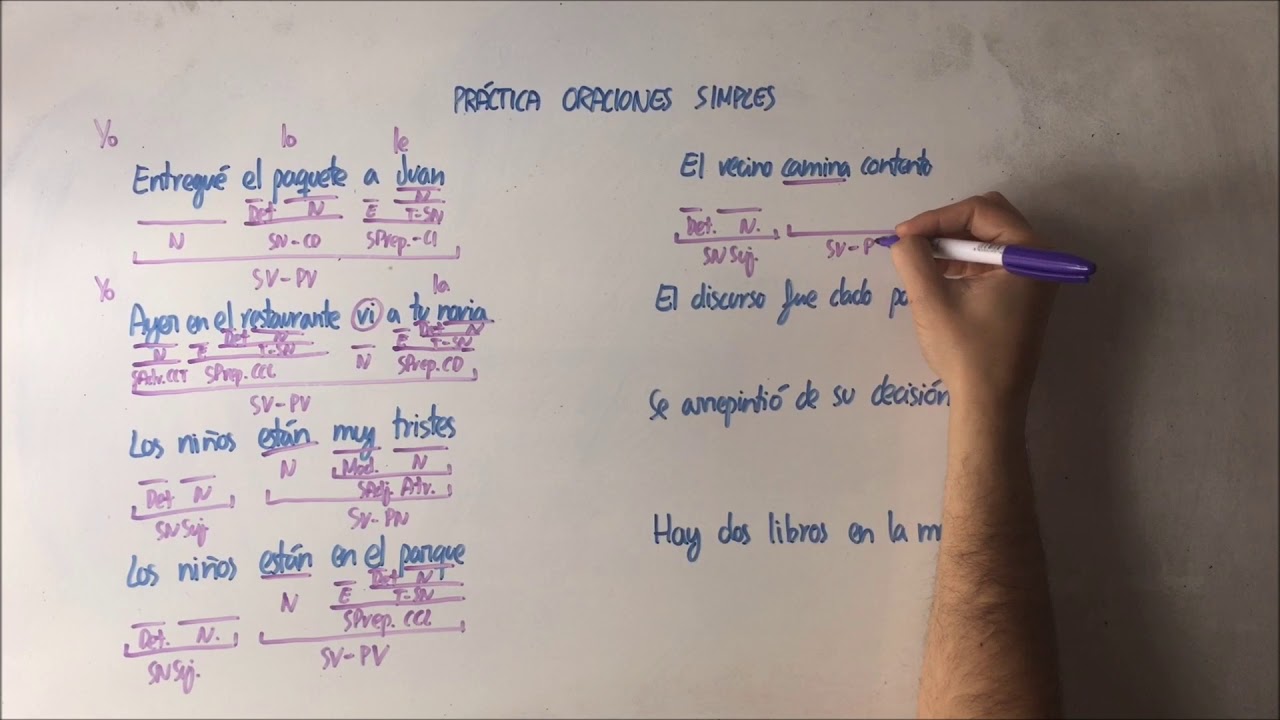 PRÁCTICA ORACIONES SIMPLES
Yo lo le
Entregué el paquete a Juan
N
Det N E T-SN
N SN-CD SPrep.-CI
SV-PV
Yo la
Ayer en el restaurante vi a tu novia
Det N Det N
N E T-SN N E T-SN
SAdv.CCT SPrep.CCL SPrep.CD
SV-PV
Los niños están muy tristes
N Mod. N
Det N SAdj. Atr.
SN Suj. SV-PN
Los niños están en el parque
Det N
N E T-SN
SPrep. CCL
Det. N.
SN Suj. SV-PV
El vecino camina contento
Det. N.
SN Suj. SV-P
El discurso fue dado
Se arrepintió de su decisión
Hay dos libros en la